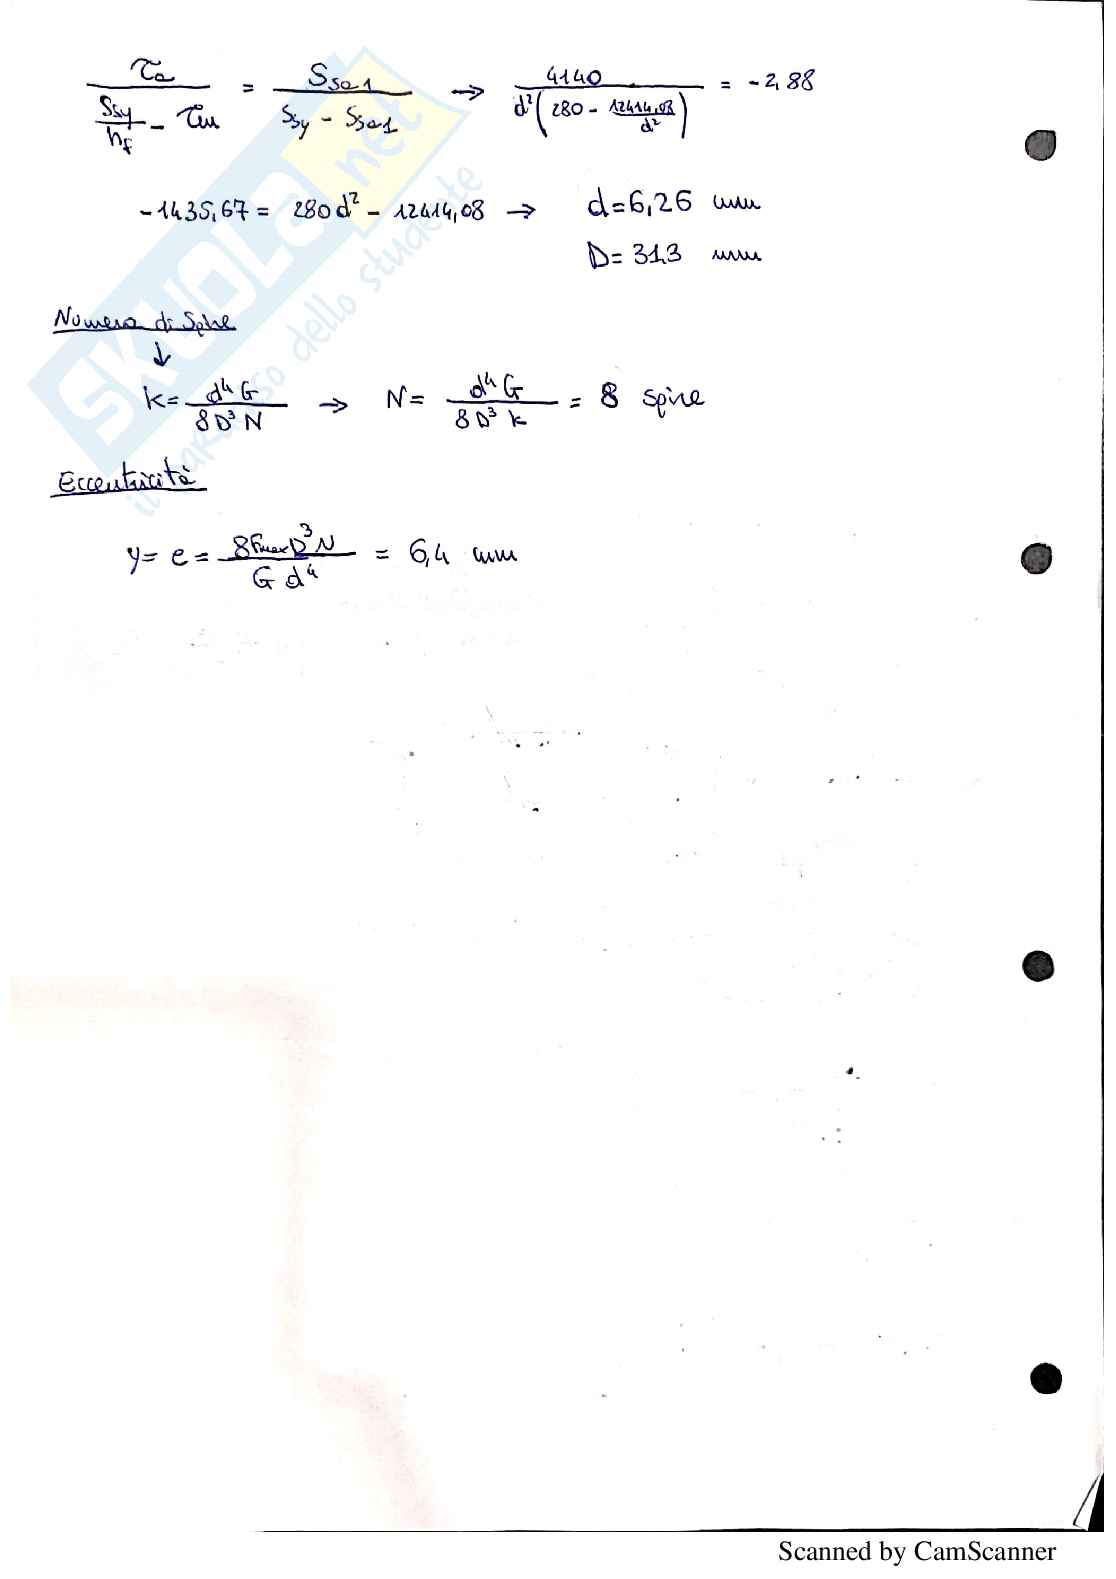 τa / (Ssy/nf - τm) = Ssa1 / (Ssy - Ssa1) → 4140 / d²(280 - 12414,08/d²) = -2,88
-1435,67 = 280d² - 12414,08 → d=6,26 mm
D= 31,3 mm
Numero di Spire
↓
k= d⁴G / 8D³N → N= d⁴G / 8D³k = 8 spire
Eccentricità
y= e = 8FmaxD³N / G d⁴ = 6,4 mm
SKUOLA.net
il paradiso dello studente
Scanned by CamScanner